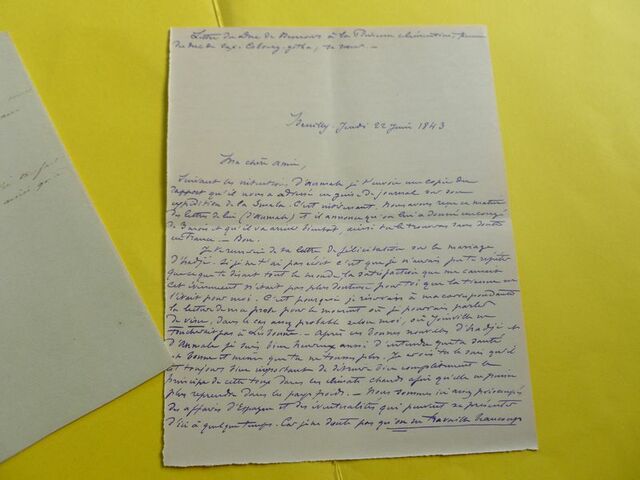 Lettre du Duc de Nemours à la Princesse Clémentine, femme
du duc de Saxe-Cobourg-gotha, sa sœur. —
Neuilly. Jeudi 22 Juin 1843
Ma chère amie,
Suivant les intentions d'Aumale je t'envoie une copie du
rapport qu'il nous a adressé en guise de journal sur son
expédition de la Smala. C'est intéressant. Nous avons reçu ce matin
des lettres de lui (d'Aumale) et il annonce qu'on lui a donné un congé
de 3 mois et qu'il va arriver bientôt, ainsi tu le trouveras sans doute
en France — Bon.
Je te remercie de ta lettre de félicitation sur le mariage
d'Hadji. Si je ne t'ai pas écrit c'est que je n'avais pu te répéter
que ce que te disait tout le monde, la satisfaction que me causait
cet événement n'était pas plus douteuse pour toi que la tienne ne
l'était pour moi. C'est pourquoi je réservais à ma correspondante
la lecture de ma prose pour le moment où je pourrais parler
de vive, dans le cas assez probable selon moi, où Joinville ne
toucherait pas à Lisbonne. — Après ces bonnes nouvelles d'Hadji et
d'Aumale je suis bien heureux aussi d'entendre que ta santé
est bonne et même que tu ne tousses plus. Je crois tu le sais qu'il
est toujours bien important de détruire bien complètement le
principe de cette toux dans les climats chauds afin qu'elle ne puisse
plus reprendre dans les pays froids. — Nous sommes ici assez préoccupés
des affaires d'Espagne et des éventualités qui peuvent se présenter
d'ici à quelque temps. Car je ne doute pas qu'on ne travaille beaucoup